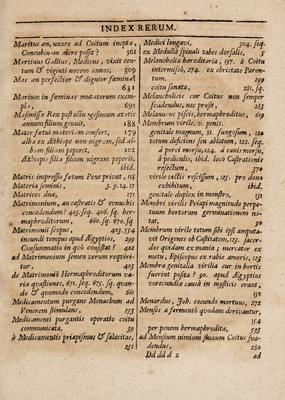 INDEX RERUM.
Maritus an, uxore ad Coitum inepta,
Concubinam alere possit? 561
Martinus Gallius, Medicus, vixit cen-
tum & viginti novem annos, 309
Mas an perfectior & dignior fœmina?
631
Marium in fœminas mutatorum exem-
pla, 695
Masinissa Rex post octogesimum ætatis
annum filium genuit, 188
Mater fœtui materiam confert, 179
alba ex Æthiope non nigram, sed al-
bam filiam peperit, 101
Æthiopis filia filium nigrum peperit,
ibid.
Matris impressio fœtum Pene privat, 118
Materia seminis, 5. 9. 14. 17
Matrices duæ, 177
Matrimonium, an castratis & eunuchis
concedendum? 403. seq. 406. sq. her-
maphroditorum, 660. sq. 670. sq.
Matrimonii scopus, 403. 554
incundi tempus apud Ægyptios, 299
Consummatio in quo consistat? 422
ad Matrimonium semen verum requiri-
tur, 405
de Matrimonio Hermaphroditorum va-
riæ quæstiones, 671. seq. 675. sq. quan-
do & quomodo concedendum, 660
Medicamentum purgans Menachum ad
Venerem stimulans, 253
Medicamenti purgantis operatio coitu
communicata, 39
à Medicamentis priapismus & salacitas,
251
Medici longævi, 304. seq.
ex Medulla spinali tabes dorsalis, 5
Melancholia hereditaria, 197. à Coitu
intermisso, 274. ex ebrietate Paren-
tum, 299
coitu sanata, 281. sq.
Melancholicis cur Coitus non semper
suadendus, nec prosit, 285
Melanurus piscis, hermaphroditus, 619
Membrum virile. v. penis.
genitale magnum, 51. fungosum, 120
totum deficiens seu ablatum, 122. seq.
à porci morsu, 124. à canis morsu,
à pediculis, ibid. loco Castrationis
resectum, 370
virile vestis resectum, 125. pro dono
exhibitum, ibid.
genitale duplex in monstro, 131
Membri virilis Priapi magnitudo perpe-
tuum hortorum germinationem no-
tat, 90
Membrum virile totum sibi ipsi amputa-
vit Origenes ob Castitatem, 123. Sacer-
dos quidam ex mania; mercator ex
metu, Episcopus ex rabie amoris, 125
Membra genitalia virilia cur in hortis
fuerint posita? 90. apud Ægyptios
verecundia causâ in mysticis erant,
131
Menardus, Joh. coeundo mortuus, 272
Menses a fermento quodam derivantur,
154
per penem hermaphroditæ, 595
ad Mensium nimium fluxum Coitus sua-
dendus, 280
Dd dd d 2 ad